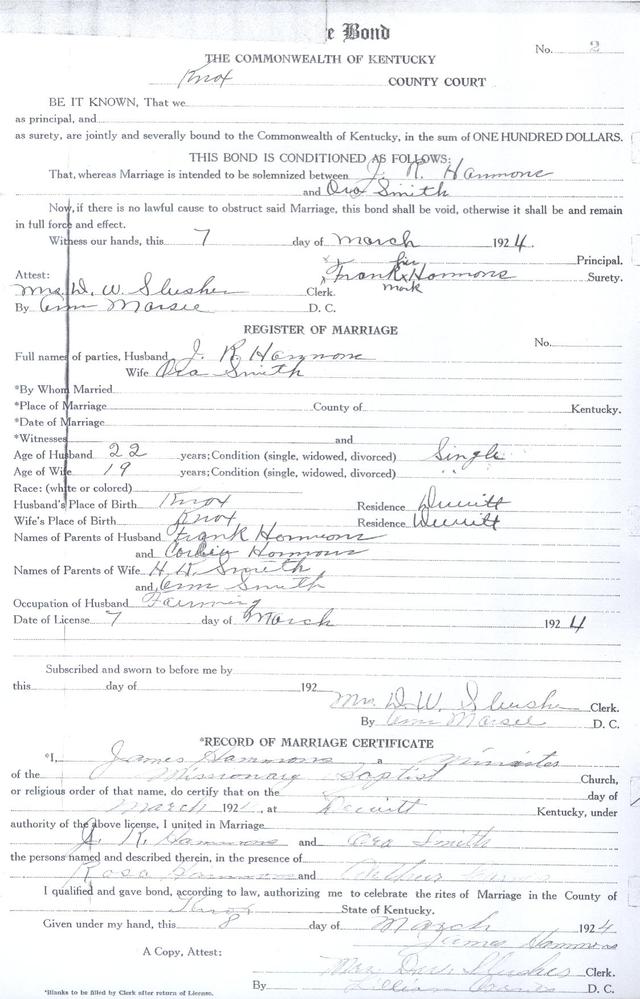 e Bond
No. 2
THE COMMONWEALTH OF KENTUCKY
Knox COUNTY COURT
BE IT KNOWN, That we
as principal, and
as surety, are jointly and severally bound to the Commonwealth of Kentucky, in the sum of ONE HUNDRED DOLLARS.
THIS BOND IS CONDITIONED AS FOLLOWS:
That, whereas Marriage is intended to be solemnized between J. R. Hammons
and Ora Smith
Now, if there is no lawful cause to obstruct said Marriage, this bond shall be void, otherwise it shall be and remain
in full force and effect.
Witness our hands, this 7 day of March 1924.
x his Principal.
Attest: Frank x Hammons Surety.
Mrs. D. W. Slusher Clerk. mark
By Ann Marsee D. C.
REGISTER OF MARRIAGE
No.
Full names of parties, Husband J. R. Hammons
Wife Ora Smith
*By Whom Married
*Place of Marriage County of Kentucky.
*Date of Marriage
*Witnesses and
Age of Husband 22 years; Condition (single, widowed, divorced) Single
Age of Wife 19 years; Condition (single, widowed, divorced) "
Race: (white or colored)
Husband's Place of Birth Knox Residence Dewitt
Wife's Place of Birth Knox Residence Dewitt
Names of Parents of Husband Frank Hammons
and Hammons
Names of Parents of Wife H. W. Smith
and Ann Smith
Occupation of Husband Farming
Date of License 7 day of March 1924
Subscribed and sworn to before me by
this day of 192
Mrs. D. W. Slusher Clerk.
By Ann Marsee D. C.
*RECORD OF MARRIAGE CERTIFICATE
*I, James Hammons a Minister
of the Missionary Baptist Church,
or religious order of that name, do certify that on the day of
March 192 , at Dewitt Kentucky, under
authority of the above license, I united in Marriage
J. R. Hammons and Ora Smith
the persons named and described therein, in the presence of
Rosa Hammons and Arthur
I qualified and gave bond, according to law, authorizing me to celebrate the rites of Marriage in the County of
Knox State of Kentucky.
Given under my hand, this 8 day of March 1924
James Hammons
A Copy, Attest:
Mrs. Slusher Clerk.
By Lillian D. C.
*Blanks to be filled by Clerk after return of License.